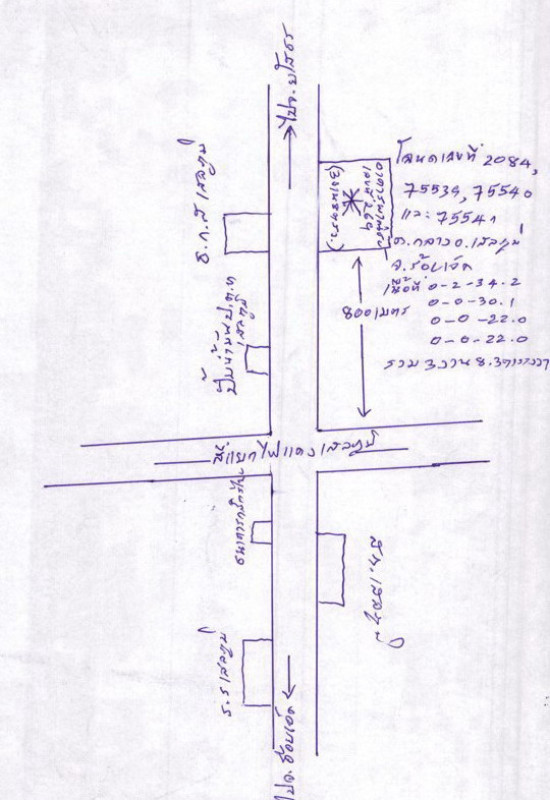 ไปจ.ยโสธร
ธ.ก.ส เสลภูมิ
เลขที่ 264
โฉนดเลขที่ 2084,
75539, 75540
และ 75541
ต.กลาง อ.เสลภูมิ
จ.ร้อยเอ็ด
เนื้อที่ 0-2-34.2
0-0-30.1
0-0-22.0
0-0-22.0
รวม 3 งาน 8.3 ตารางวา
800 เมตร
ปั๊มน้ำมัน
เสลภูมิ
สี่แยกไฟแดงเสลภูมิ
ธนาคารกสิกรไทย
สภ.เสลภูมิ
ร.ร เสลภูมิ
ไปจ.ร้อยเอ็ด